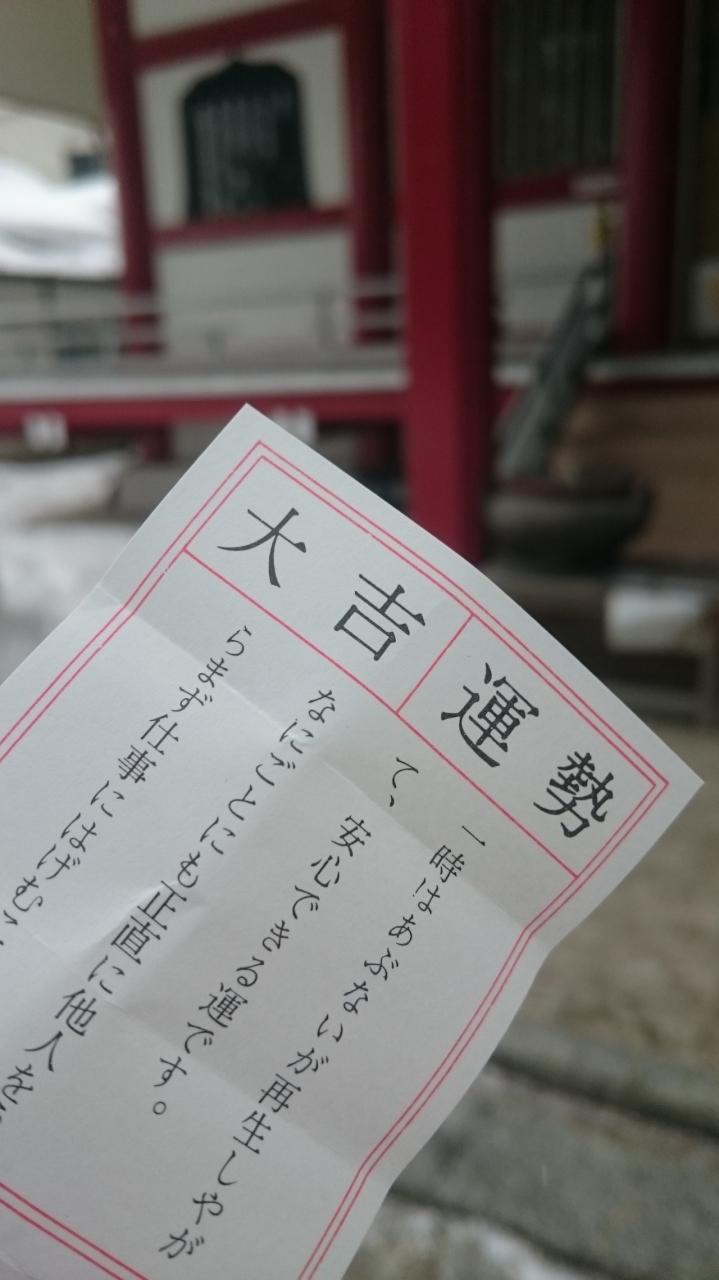 運勢
大吉
一時はあぶないが再生しやが
て、安心できる運です。
なにごとにも正直に他人を
らまず仕事にはげむこ